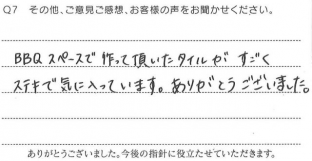 Q7 その他、ご意見ご感想、お客様の声をお聞かせください。
BBQスペースで作って頂いたタイルがすごく
ステキで気に入っています。ありがとうございました。
ありがとうございました。今後の指針に役立たせていただきます。